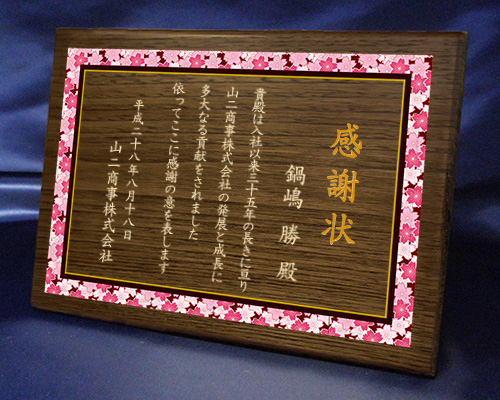 感謝状
鍋嶋 勝 殿
貴殿は入社以来三十五年の長きに亘り
山二商事株式会社の発展と成長に
多大なる貢献をされました
依ってここに感謝の意を表します
平成二十八年八月十八日
山二商事株式会社